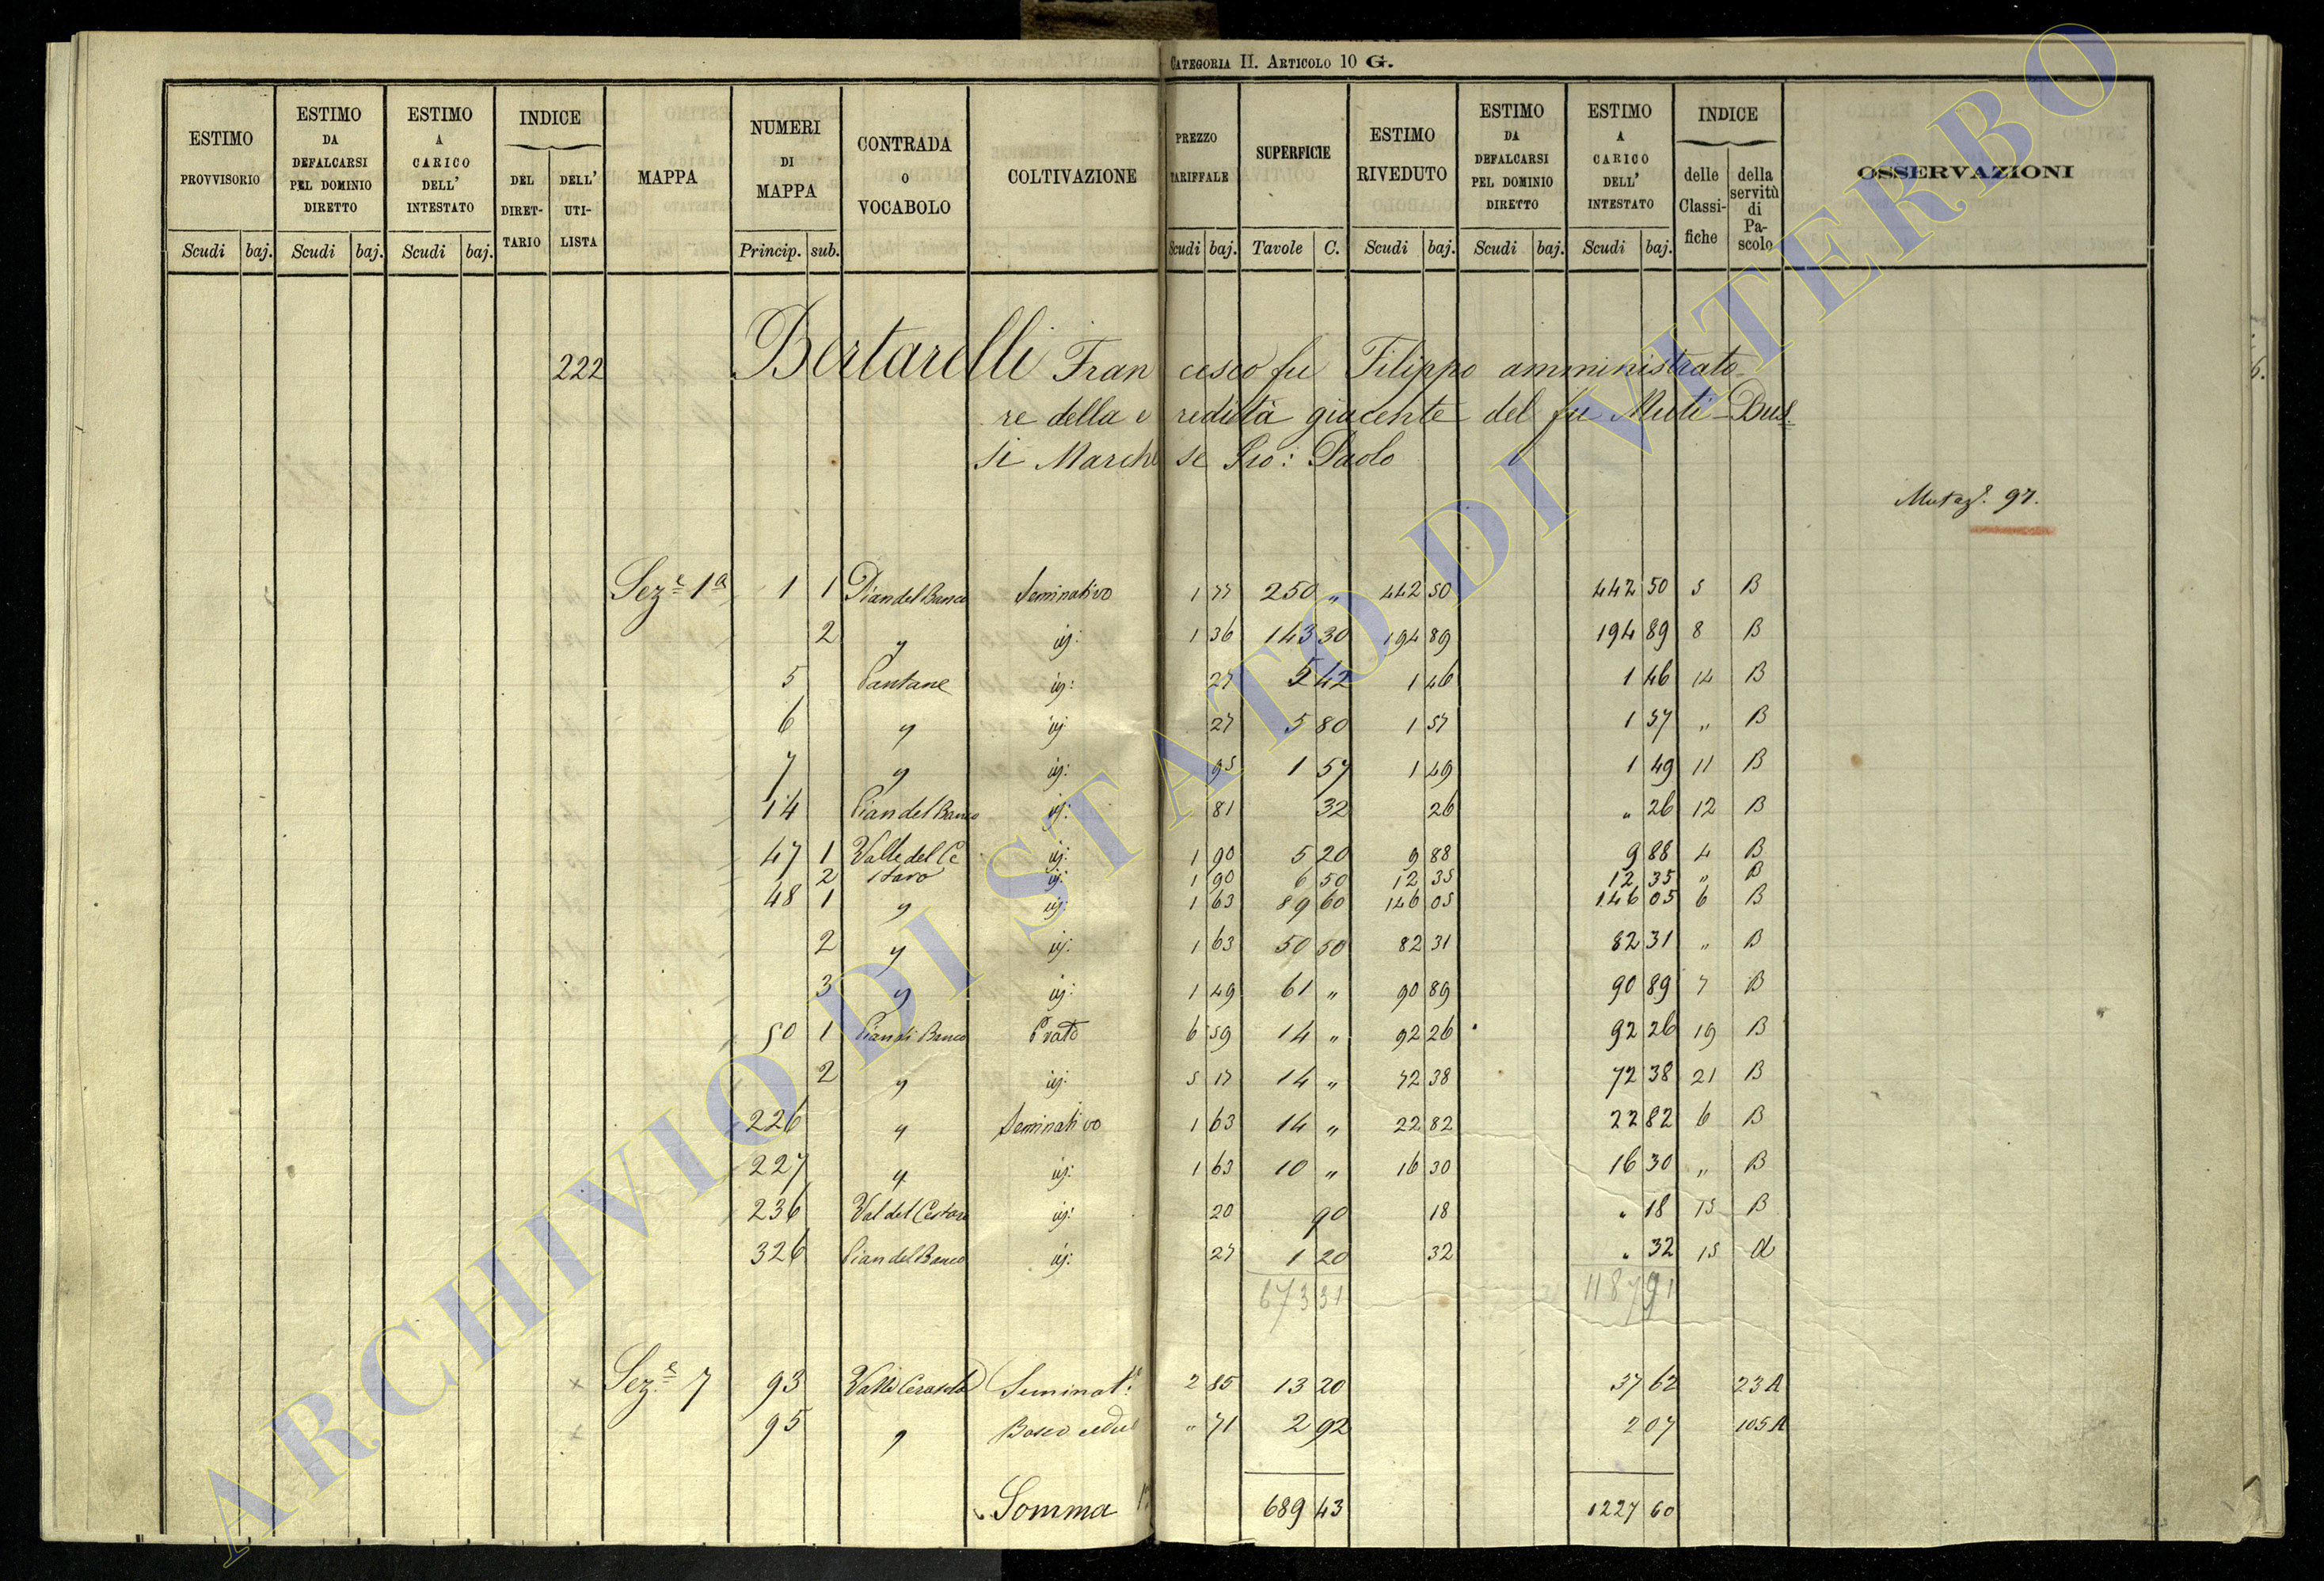 CATEGORIA II. ARTICOLO 10 G.
ESTIMO PROVVISORIO | ESTIMO DA DEFALCARSI PEL DOMINIO DIRETTO | ESTIMO A CARICO DELL' INTESTATO | INDICE DEL DIRETTARIO | DELL' UTILISTA | MAPPA | NUMERI DI MAPPA | CONTRADA O VOCABOLO | COLTIVAZIONE | PREZZO TARIFFALE | SUPERFICIE | ESTIMO RIVEDUTO | ESTIMO DA DEFALCARSI PEL DOMINIO DIRETTO | ESTIMO A CARICO DELL' INTESTATO | INDICE delle Classifiche | della servitù di Pascolo | OSSERVAZIONI
Scudi baj. Scudi baj. Scudi baj. Princip. sub. Scudi baj. Tavole C. Scudi baj. Scudi baj. Scudi baj.
222 Bertarelli Francesco fu Filippo amministrato
re della eredità giacente del fu Muti-Bus
si Marchese Gio: Paolo
Mutaz. 97.
Sez.e 1a 1 1 Pian del Banco Seminativo 1 77 250 „ 442 50 442 50 5 B
2 „ id: 1 36 143 30 194 89 194 89 8 B
5 Pantane id: 27 5 42 1 46 1 46 14 B
6 „ id 27 5 80 1 57 1 57 „ B
7 „ id: 95 1 57 1 49 1 49 11 B
14 Pian del Banco id: 81 32 26 „ 26 12 B
47 1 Valle del Ce id: 1 90 5 20 9 88 9 88 4 B
2 staro id: 1 90 6 50 12 35 12 35 „ B
48 1 „ id: 1 63 89 60 146 05 146 05 6 B
2 „ id: 1 63 50 50 82 31 82 31 „ B
3 „ id: 1 49 61 „ 90 89 90 89 7 B
50 1 Pian di Banco Prato 6 59 14 „ 92 26 92 26 19 B
2 „ id: 5 17 14 „ 72 38 72 38 21 B
226 „ Seminativo 1 63 14 „ 22 82 22 82 6 B
227 „ id: 1 63 10 „ 16 30 16 30 „ B
236 Val del Cestaro id: 20 90 18 „ 18 15 B
326 Pian del Banco id: 27 1 20 32 „ 32 15 A
673 31 1187 91
Sez.e 7 93 Valle Cerasola Seminat.o 2 85 13 20 37 62 23 A
95 „ Bosco ceduo „ 71 2 92 2 07 105 A
Somma 689 43 1227 60
ARCHIVIO DI STATO DI VITERBO